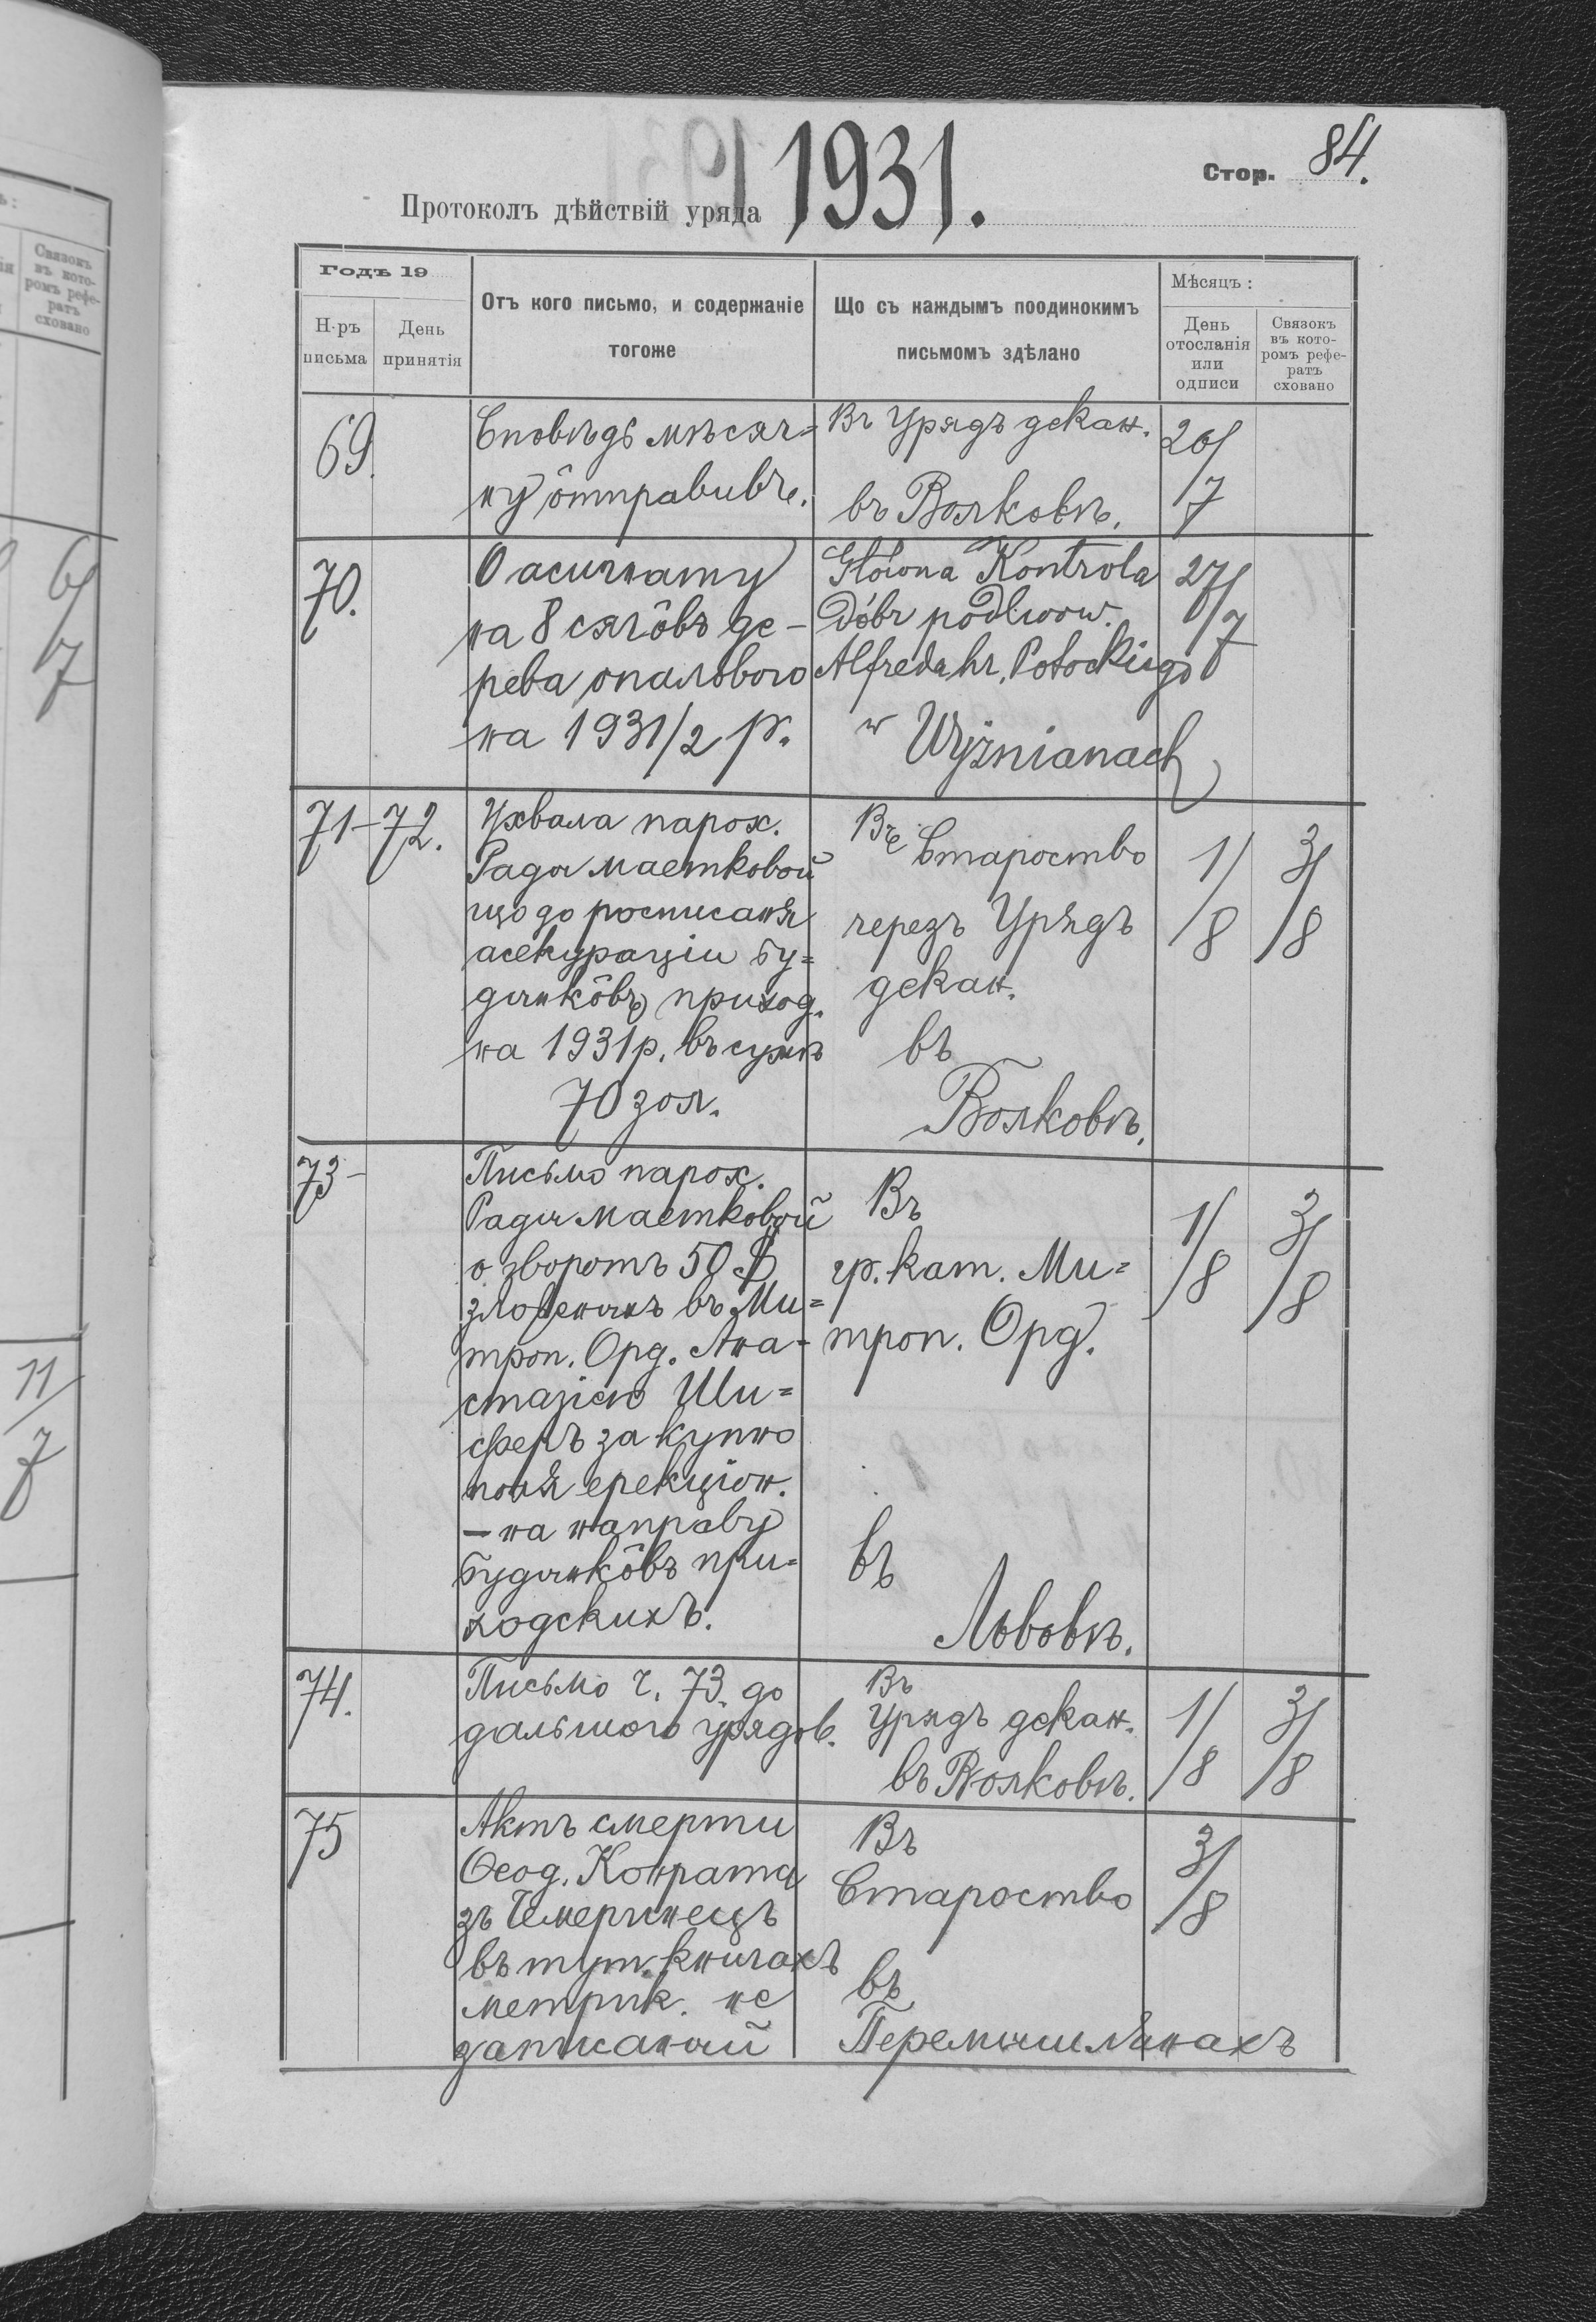 1931.
Стор. 84.
Протоколъ дѣйствій уряда
Годъ 19
Н-ръ письма
День принятія
Отъ кого письмо, и содержаніе
тогоже
Що съ каждымъ поодинокимъ
письмомъ здѣлано
Мѣсяцъ:
День
отосланія
или
одписи
Связокъ
въ кото-
ромъ рефе-
ратъ
сховано
69.
Сповѣдь мѣсяч=
ну ôтправивъ.
Въ Урядъ декан.
въ Волковѣ.
20/
7
70.
О асигнату
на 8 сягôвъ де-
рева опалового
на 1931/2 р.
Główna Kontrola
Dóbr podlwow.
Alfreda hr. Potockiego
w Wyżnianach
27/
7
71-72.
Ухвала парох.
Рады маетковой
що до росписаня
асекураціи бу=
дынкôвъ приход.
на 1931 р. въ сумѣ
70 зол.
Въ Староство
черезъ Урядъ
декан.
въ
Волковѣ.
1/
8
3/
8
73-
Письмо парох.
Рады маетковой
о зворотъ 50 $
зложеныхъ въ Ми=
троп. Орд. Ана-
стазіею Ши=
феръ за купно
поля ерекціон.
- на направу
будынкôвъ при=
ходскихъ.
Въ
гр. кат. Ми=
троп. Орд.
въ
Львовѣ.
1/
8
3/
8
74.
Письмо ч. 73. до
дальшого урядов.
Въ
Урядъ декан.
въ Волковѣ.
1/
8
3/
8
75
Актъ смерти
Ѳеод. Конрата
зъ Чемеринецъ
въ тут. книгахъ
метрик. не
записаный
Въ
Староство
въ
Перемышлянахъ
3/
8
Связокъ
въ кото-
ромъ рефе-
ратъ
сховано
6/
7
11/
7